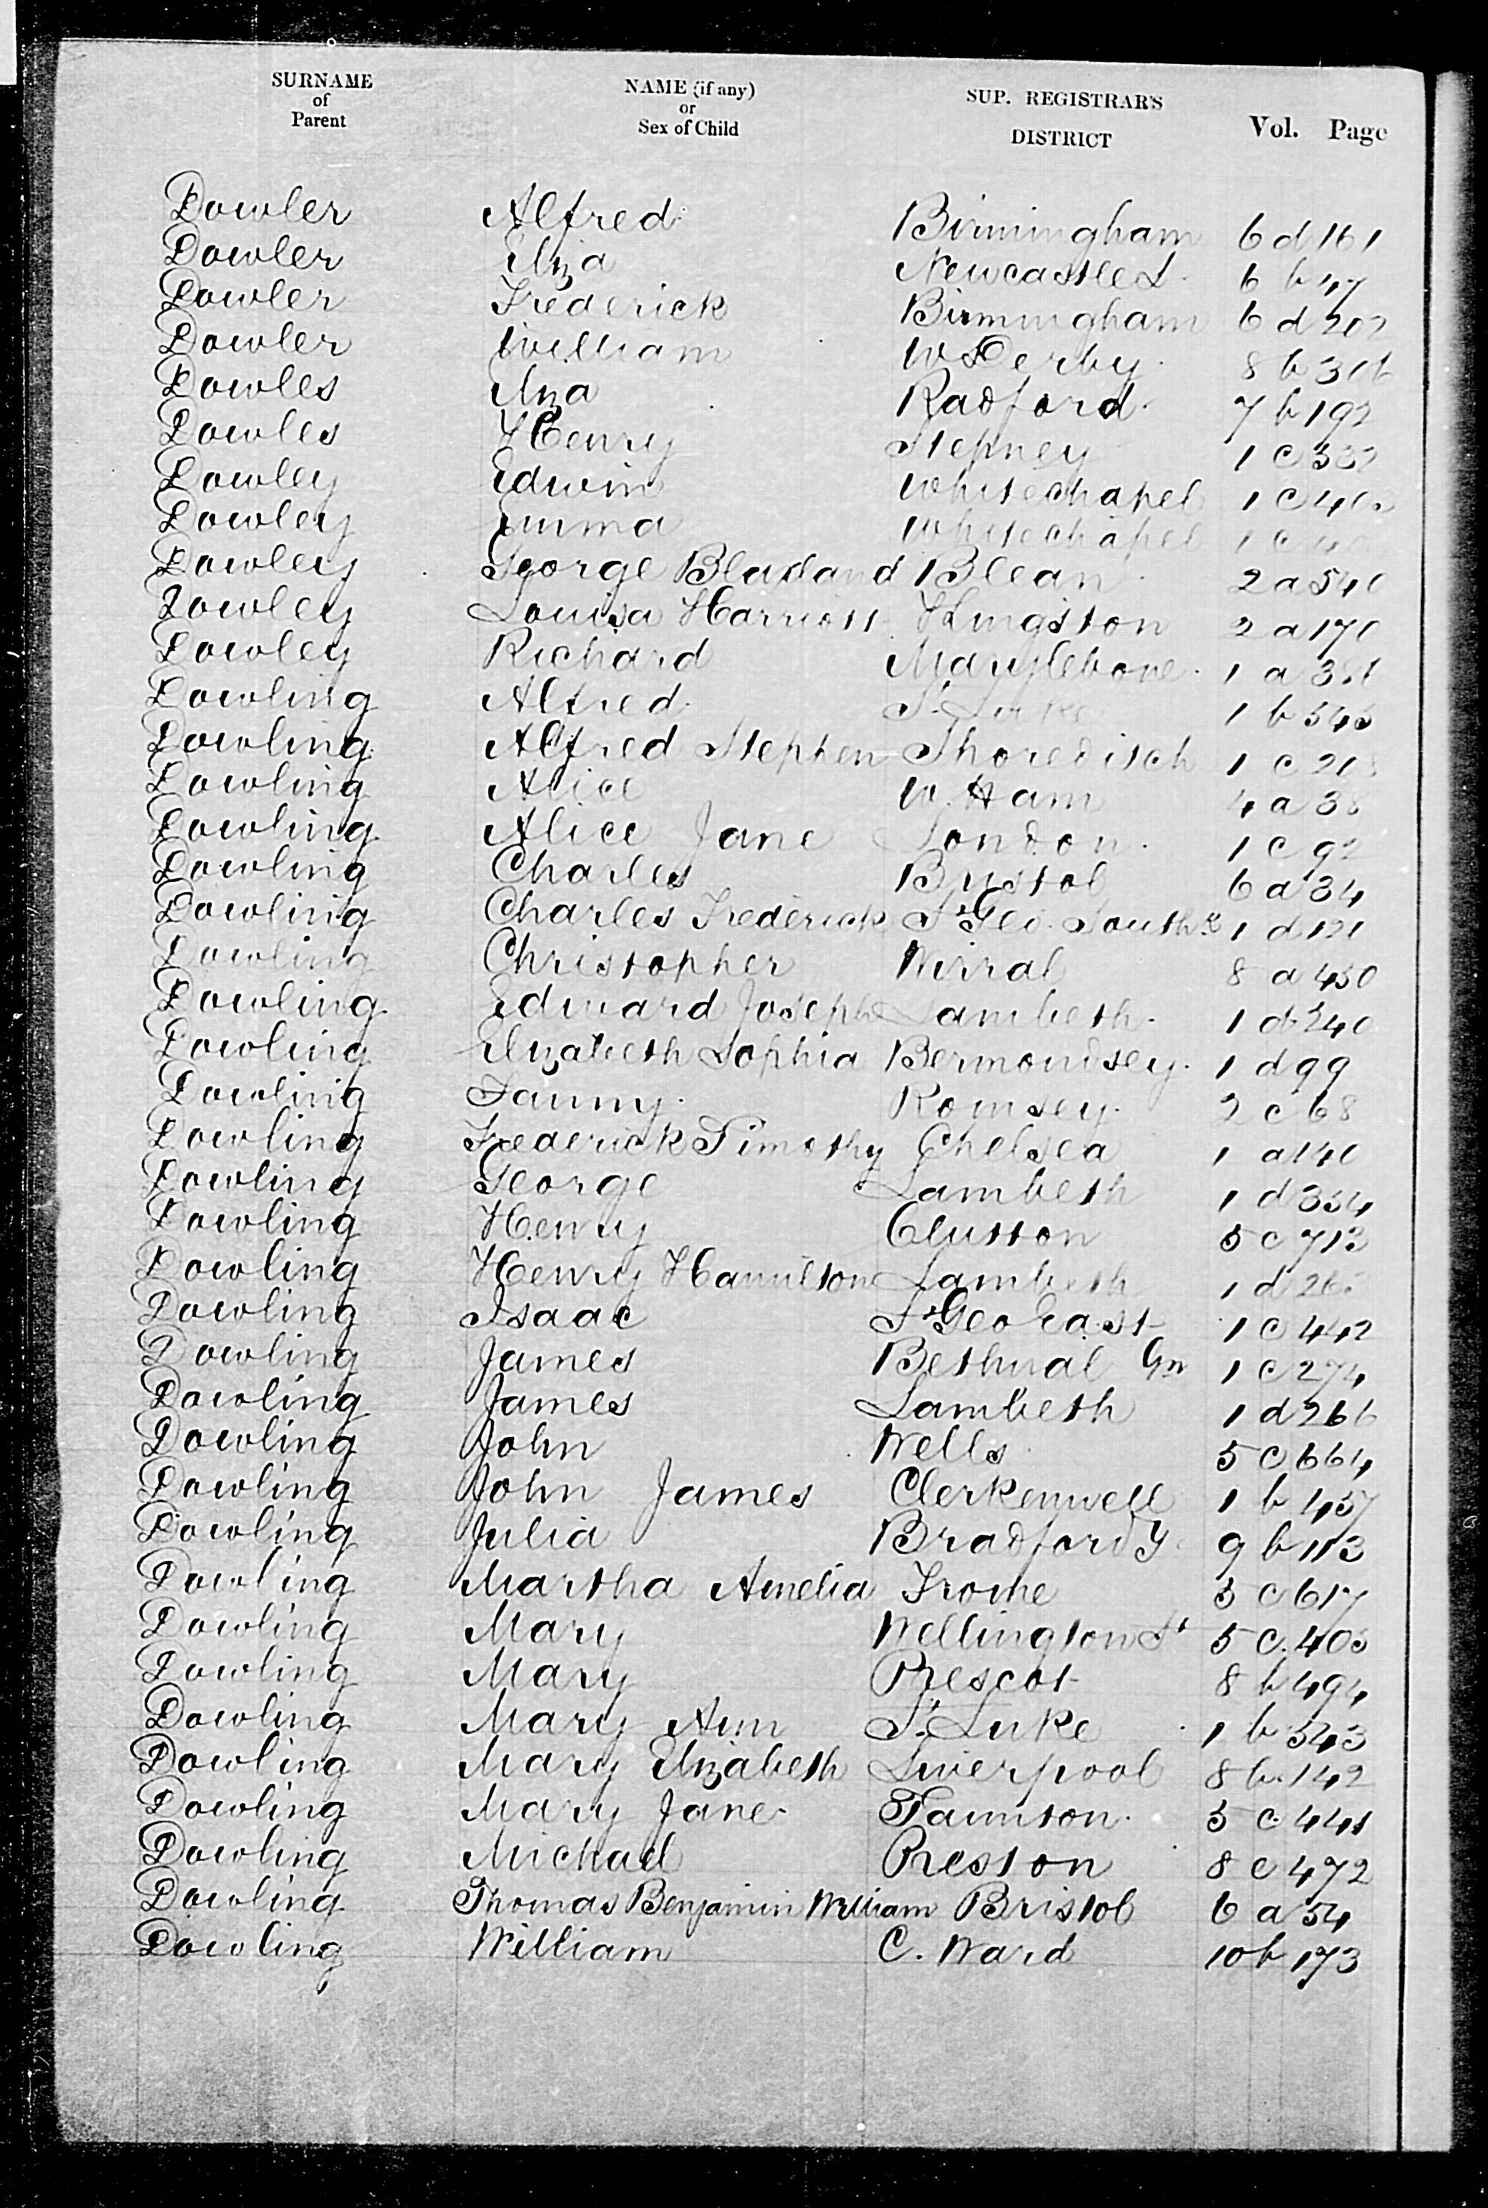 SURNAME of Parent NAME (if any) or Sex of Child SUP. REGISTRAR'S DISTRICT Vol. Page
Dowler Alfred Birmingham 6 d 161
Dowler Eliza Newcastle L. 6 b 47
Dowler Frederick Birmingham 6 d 202
Dowler William W. Derby 8 b 316
Dowles Eliza Radford 7 b 192
Dowles Henry Stepney 1 c
Dowley Edwin Whitechapel 1 c
Dowley Emma Whitechapel 1 c
Dowley George Blaxland Blean 2 a 540
Dowley Louisa Harriott Kingston 2 a 170
Dowley Richard Marylebone 1 a
Dowling Alfred St. Luke 1 b 543
Dowling Alfred Stephen Shoreditch 1 c
Dowling Alice W. Ham 4 a
Dowling Alice Jane London 1 c 92
Dowling Charles Bristol 6 a 34
Dowling Charles Frederick St Geo. Southk 1 d 121
Dowling Christopher Wirral 8 a 430
Dowling Edward Joseph Lambeth 1 d 240
Dowling Elizabeth Sophia Bermondsey 1 d 99
Dowling Fanny Romsey 2 c 68
Dowling Frederick Timothy Chelsea 1 a 140
Dowling George Lambeth 1 d 334
Dowling Henry Clutton 5 c 713
Dowling Henry Hamilton Lambeth 1 d
Dowling Isaac St Geo East 1 c 442
Dowling James Bethnal Gn 1 c 274
Dowling James Lambeth 1 d 266
Dowling John Wells 5 c 664
Dowling John James Clerkenwell 1 b 457
Dowling Julia Bradford Y. 9 b 113
Dowling Martha Amelia Frome 5 c 617
Dowling Mary Wellington St 5 c 403
Dowling Mary Prescot 8 b 494
Dowling Mary Ann St. Luke 1 b 543
Dowling Mary Elizabeth Liverpool 8 b 142
Dowling Mary Jane Taunton 5 c 441
Dowling Michael Preston 8 e 472
Dowling Thomas Benjamin William Bristol 6 a 54
Dowling William C. Ward 10 b 173